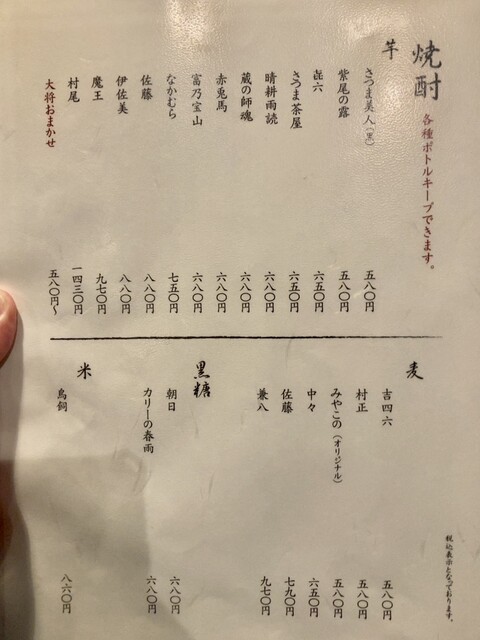 焼酎 各種ボトルキープできます。
芋
さつま美人(黒) 五八〇円
紫尾の露 五八〇円
㐂六 六五〇円
さつま茶屋 六五〇円
晴耕雨読 六八〇円
蔵の師魂 六八〇円
赤兎馬 六八〇円
富乃宝山 六八〇円
なかむら 七五〇円
佐藤 八八〇円
伊佐美 八八〇円
魔王 九七〇円
村尾 一四三〇円
大将おまかせ 五八〇円〜
麦
吉四六 五八〇円
村正 五八〇円
みやこの(オリジナル) 五八〇円
中々 六五〇円
佐藤 七九〇円
兼八 九七〇円
黒糖
朝日 六八〇円
カリーの春雨 六八〇円
米
鳥飼 八六〇円
税込表示となっております。